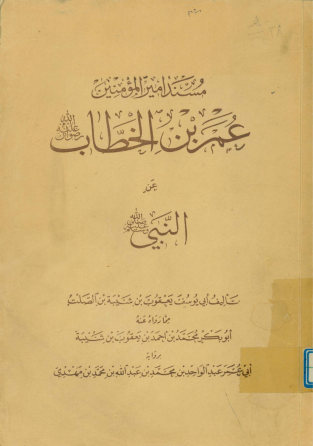 مسند امير المؤمنين
عمر بن الخطاب رضي الله عنه
عن
النبي صلى الله عليه وسلم
تأليف أبي يوسف يعقوب بن شيبة بن الصلت
مما رواه عنه
أبو بكر محمد بن احمد بن يعقوب بن شيبة
برواية
أبي عمر عبد الواحد بن محمد بن عبد الله بن محمد بن مهدي